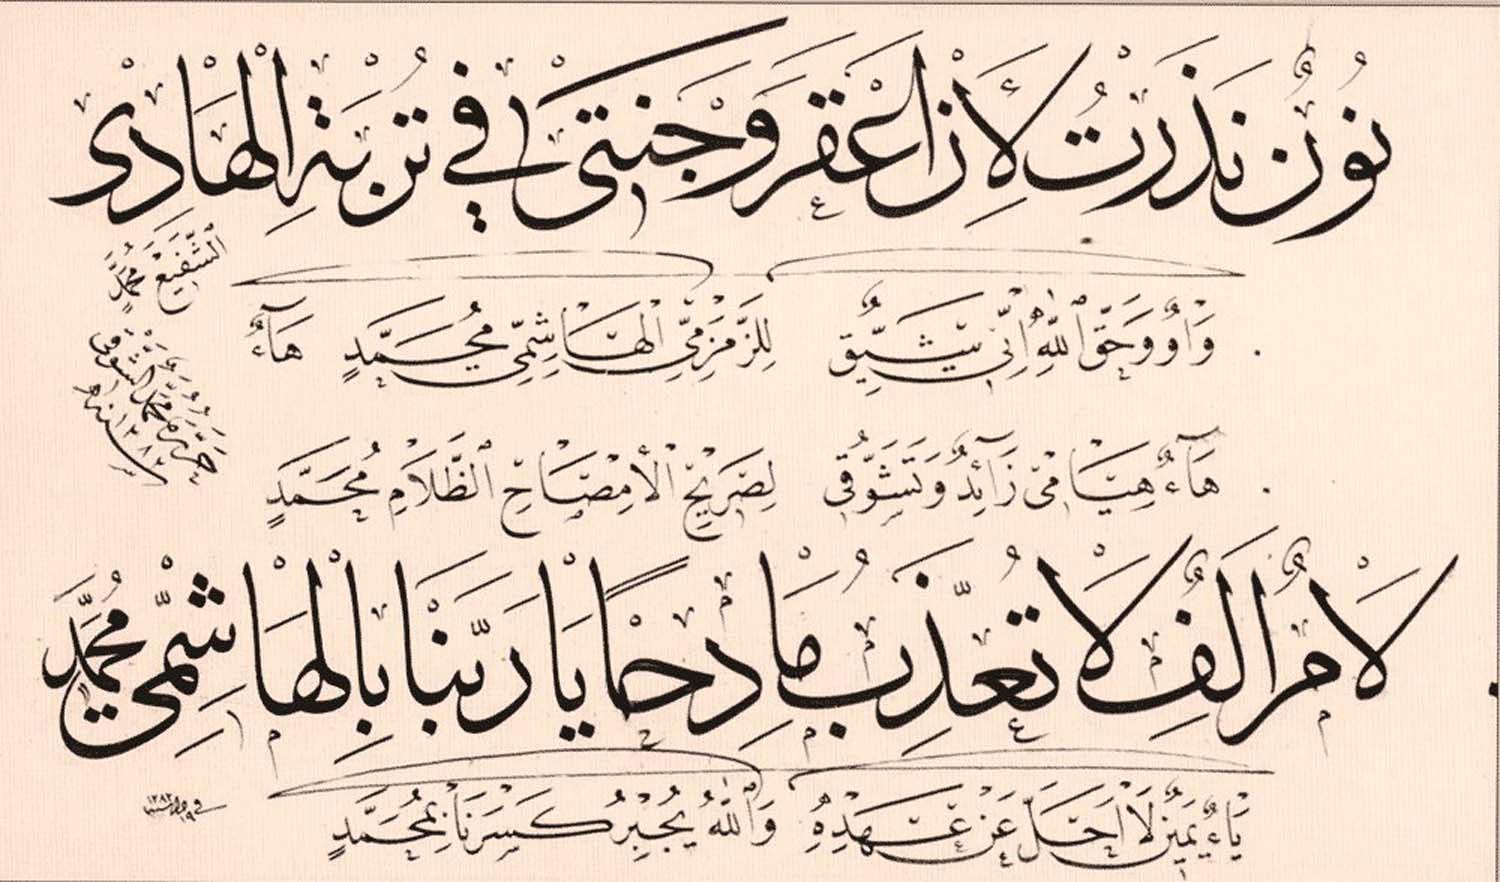 نُونٌ نَذَرْتُ لَأَنْ اُعَفِّرَ وَجْنَتِى فِي تُرْبَةِ الْهَادِى
الشَّفِيعِ مُحَمَّدٍ
وَاوٌ وَحَقِّ اللهِ اِنِّى شَيِّقٌ لِلزَّمْزَمِيِّ الْهَاشِمِيِّ مُحَمَّدٍ هَاءٌ
هَاءٌ هِيَامِى زَائِدٌ وَتَشَوُّقِى لِضَرِيحِ الْأَمِصْبَاحِ الظَّلَامِ مُحَمَّدٍ
لَامُ اَلِفٌ لَا تُعَذِّبْ مَادِحًا يَا رَبَّنَا بِالْهَاشِمِيِّ مُحَمَّدٍ
يَاءٌ يَمِينٌ لَا اَحُلُّ عَنْ عَهْدِهِ وَاللهُ يُجْبِرُ كَسْرَنَا بِمُحَمَّدٍ
حَرَّرَهُ مُحَمَّدُ الشَّوْقِى
سنة ١٢٨٢